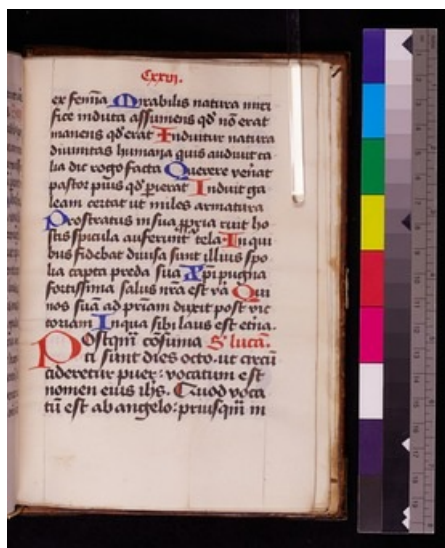 Cxxvi.
ex femina Mirabilis natura miri
fice induta assumens qd nō erat
manens qd erat Induitur natura
diuinitas humana quis audiuit ta
lia dic rogo facta Querere venat
pastor pius qd pierat Induit ga
leam certat ut miles armatura
Prostratus in sua ppria ruit ho
stis spicula auferunt tela In qui
bus fidebat diuisa sunt illius spo
lia capta preda sua Xpi pugna
fortissima salus nrā est va Qui
nos suā ad priam duxit post vic
toriam In qua sibi laus est etīa.
Postqm̄ cōsuma S. lucā.
ti sunt dies octo. ut circū
cideretur puer: vocatum est
nomen eius ihs. Quod voca
tū est ab angelo: priusqm̄ in